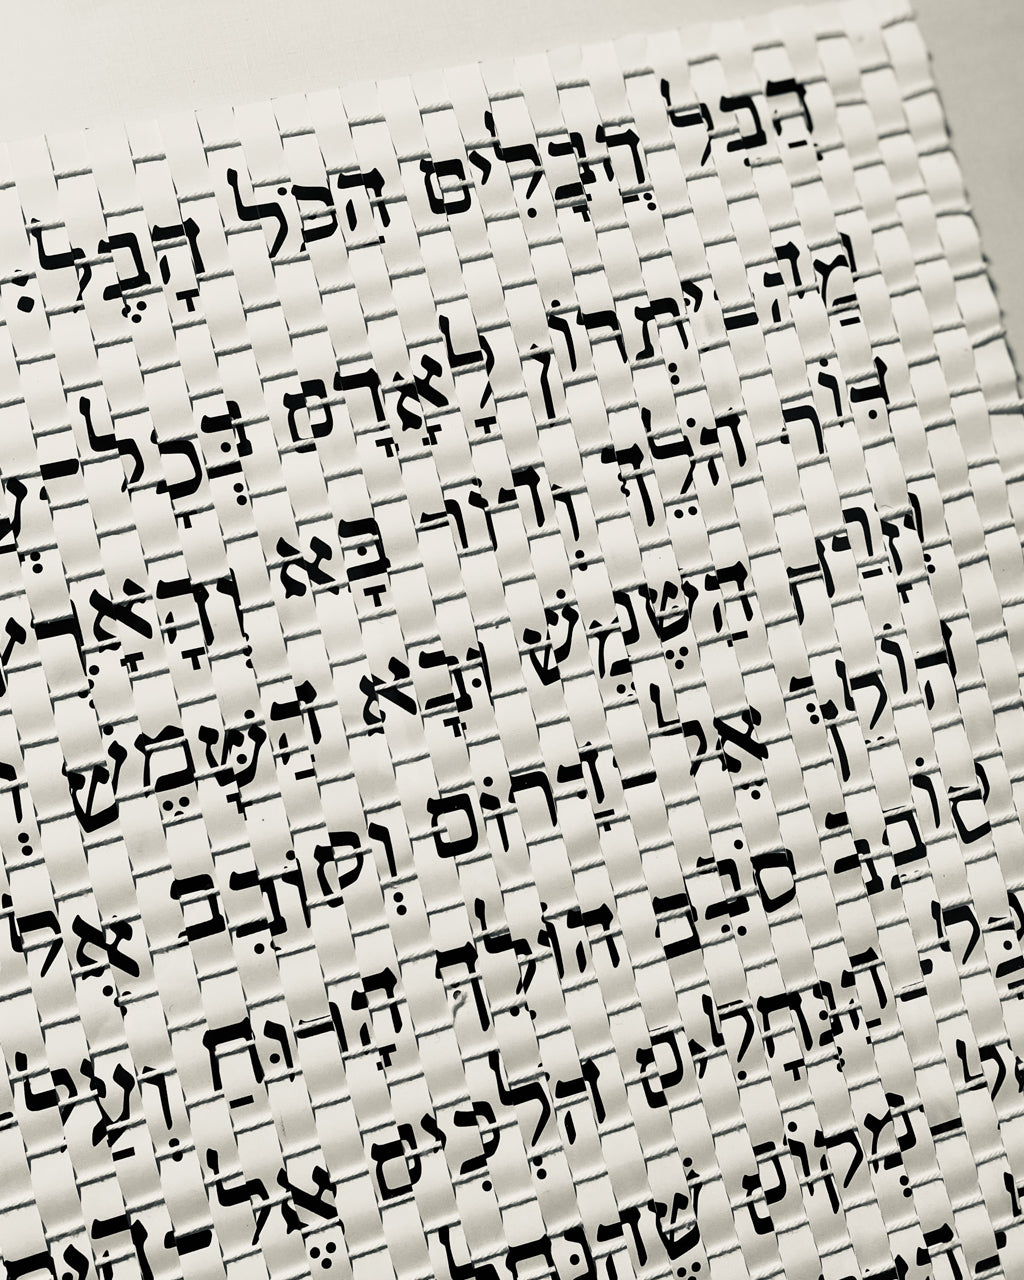 הֲבֵל הֲבָלִים הַכֹּל הָבֶל׃
מַה־יִּתְרוֹן לָאָדָם בְּכָל־
דּוֹר הֹלֵךְ וְדוֹר בָּא וְהָאָרֶץ
וְזָרַח הַשֶּׁמֶשׁ וּבָא הַשָּׁמֶשׁ
הוֹלֵךְ אֶל־דָּרוֹם וְסוֹבֵב אֶל
סוֹבֵב סֹבֵב הוֹלֵךְ הָרוּחַ וְעַל
כָּל־הַנְּחָלִים הֹלְכִים אֶל־
אֶל־מְקוֹם שֶׁהַנְּחָלִים